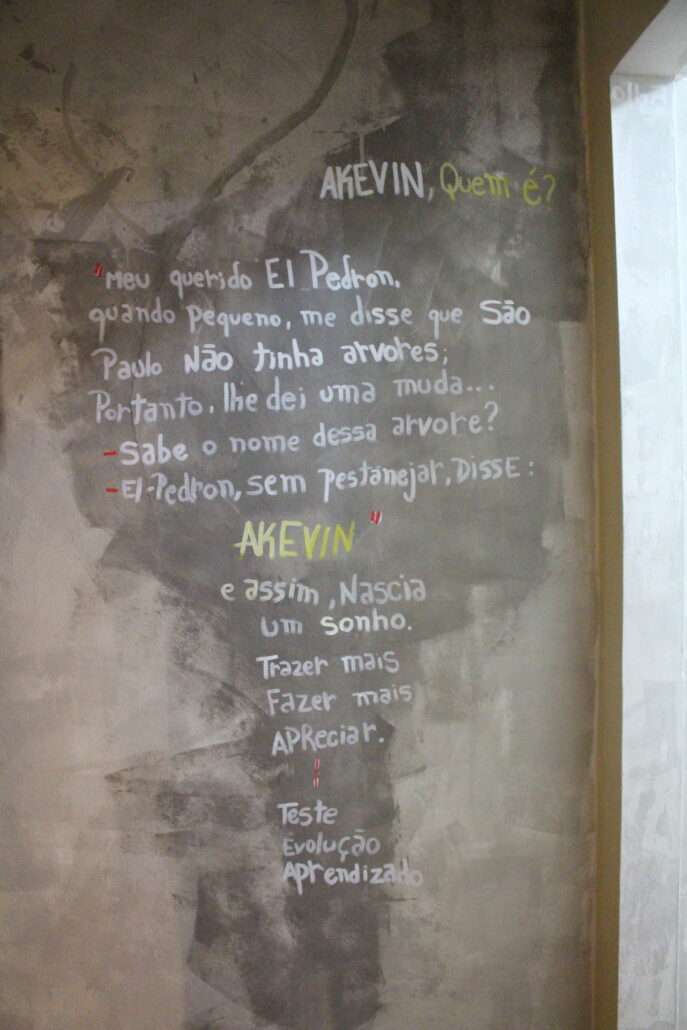 AKEVIN, Quem é?
"Meu querido El Pedron,
quando pequeno, me disse que São
Paulo Não tinha arvores;
Portanto, lhe dei uma muda...
-Sabe o nome dessa arvore?
-El-Pedron, sem pestanejar, DISSE:
AKEVIN"
e assim, Nascia
um sonho.
Trazer mais
Fazer mais
APReciar.
Teste
Evolução
Aprendizado